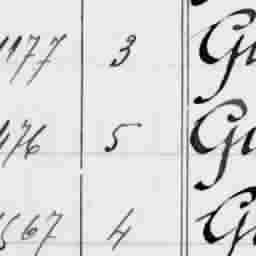 1177 3 Gu
476 5 Gu
567 4 Gu